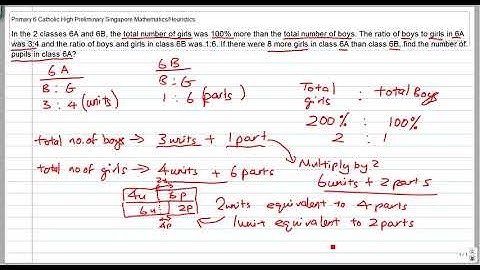 Primary 6 Catholic High Preliminary Singapore Mathematics/Heuristics
In the 2 classes 6A and 6B, the total number of girls was 100% more than the total number of boys. The ratio of boys to girls in 6A
was 3:4 and the ratio of boys and girls in class 6B was 1:6. If there were 8 more girls in class 6A than class 6B, find the number of
pupils in class 6A?
6A
B : G
3 : 4 (units)
6B
B : G
1 : 6 (parts)
Total girls : total Boys
200% : 100%
2 : 1
total no. of boys → 3 units + 1 part
Multiply by 2
6 units + 2 parts
total no of girls → 4 units + 6 parts
2u
4u 6p
6u 2p
4p
2 units equivalent to 4 parts
1 unit equivalent to 2 parts
1/1